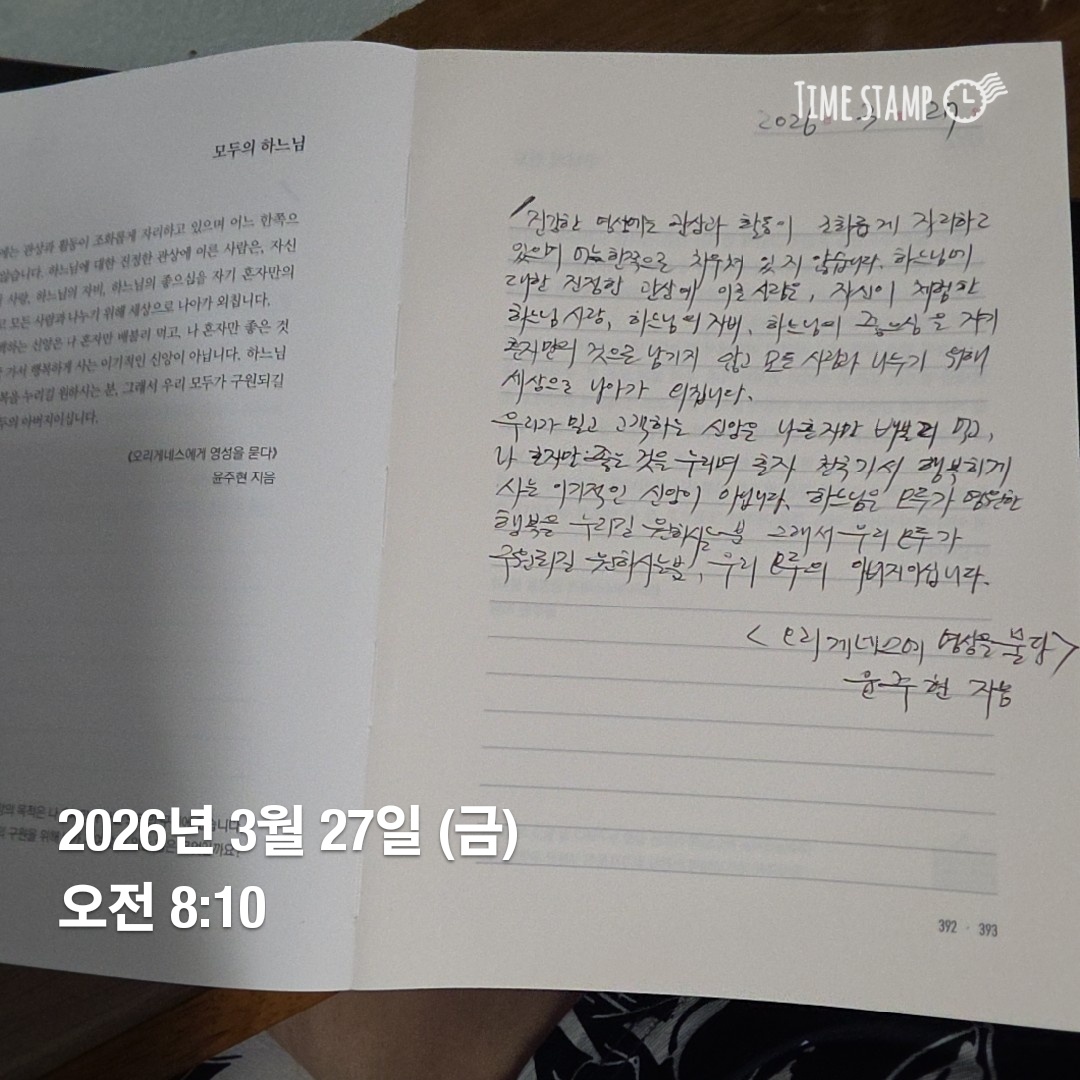 TIME STAMP
모두의 하느님
에는 관상과 활동이 조화롭게 자리하고 있으며 어느 한쪽으
않습니다. 하느님에 대한 진정한 관상에 이른 사람은, 자신
사랑, 하느님의 자비, 하느님의 좋으심을 자기 혼자만의
고 모든 사람과 나누기 위해 세상으로 나아가 외칩니다.
백하는 신앙은 나 혼자만 배불리 먹고, 나 혼자만 좋은 것
가서 행복하게 사는 이기적인 신앙이 아닙니다. 하느님
복을 누리길 원하시는 분, 그래서 우리 모두가 구원되길
두의 아버지이십니다.
《오리게네스에게 영성을 묻다》
윤주현 지음
2026 . 3 . 27.
진강한 영성에는 관상과 활동이 조화롭게 자리하고
있으며 어느 한쪽으로 치우쳐 있지 않습니다. 하느님에
대한 진정한 관상에 이른 사람은, 자신이 체험한
하느님 사랑, 하느님의 자비, 하느님의 좋으심을 자기
혼자만의 것으로 남기지 않고 모든 사람과 나누기 위해
세상으로 나아가 외칩니다.
우리가 믿고 고백하는 신앙은 나 혼자만 배불리 먹고,
나 혼자만 좋은 것을 누리며 혼자 천국가서 행복하게
사는 이기적인 신앙이 아닙니다. 하느님은 모두가 영원한
행복을 누리길 원하시는 분 그래서 우리 모두가
구원되길 원하시는 분, 우리 모두의 아버지이십니다.
< 오리게네스에 영성을 묻다>
윤주현 지음
392 · 393
2026년 3월 27일 (금)
오전 8:10